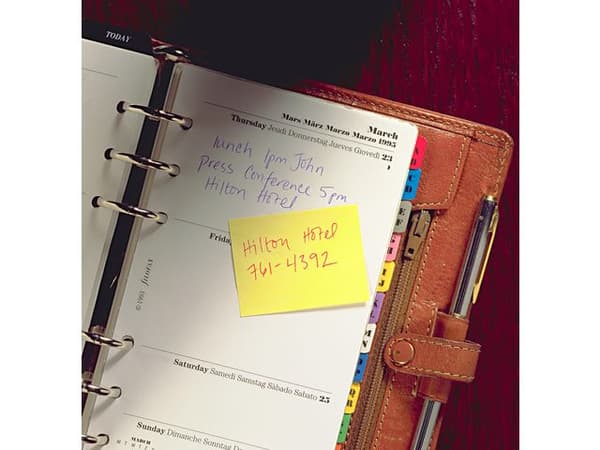 TODAY
March
Mars März Marzo Marzo 1995
Thursday Jeudi Donnerstag Jueves Giovedì 23
lunch 1pm John
Press Conference 5pm
Hilton Hotel
Frid
Hilton Hotel
761-4392
© 1993 filofax
Saturday Samedi Samstag Sàbado Sabato 25
Sunday Dimanche Sonntag D
MARCH
M T W T F S S